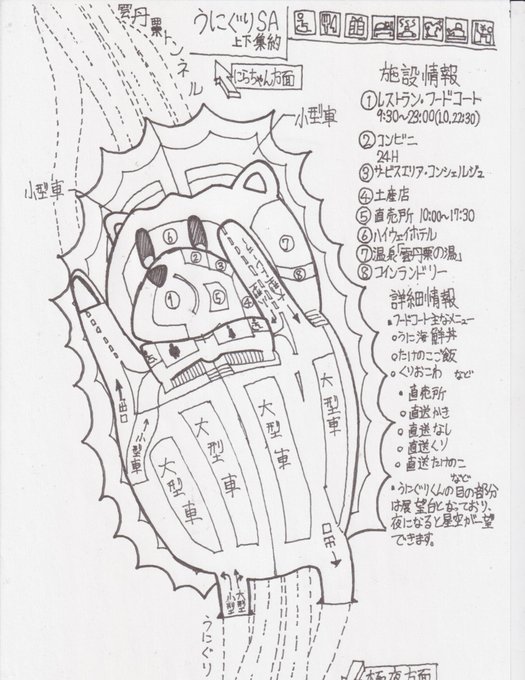 雲丹栗トンネル
うにぐりSA
上下集約
にらちゃん方面
小型車
小型車
施設情報
①レストラン・フードコート
9:30~23:00(LO,22:30)
②コンビニ
24H
③サービスエリア・コンシェルジュ
④土産店
⑤直売所 10:00~17:30
⑥ハイウェイホテル
⑦温泉「雲丹栗の湯」
⑧コインランドリー
詳細情報
●フードコート主なメニュー
○うに海鮮丼
○たけのこご飯
○くりおこわ など
●直売所
○直送かき
○直送なし
○直送くり
○直送たけのこ
など
●うにぐりくんの目の部分
は展望台となっており、
夜になると星空が一望
できます。
⑥
②
③
⑦
①
⑤
④
⑧
出口
小型車
大型車
大型車
大型車
大型車
出口
小型
大型
うにぐり
方面